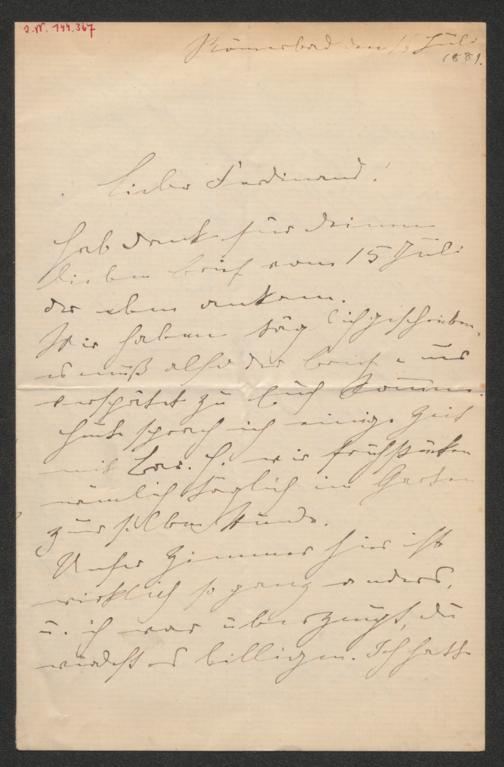 J.N. 144.367
Römerbad den 15 Juli
1881.
Lieber Ferdinand!
Hab Dank für Deinen
lieben Brief vom 15 Juli
der eben ankam.
Wir haben täglich geschrieben,
es muß also der Brief
verspätet zu Euch kommen.
Heute sprach ich einige Zeit
mit Bar. H. wir frühstücken
nämlich täglich im Garten
zur selben Stunde.
Unser Zimmer hier ist
wirklich so ganz anders,
u. ich war überzeugt, du
würdest es billigen. Ich hatte